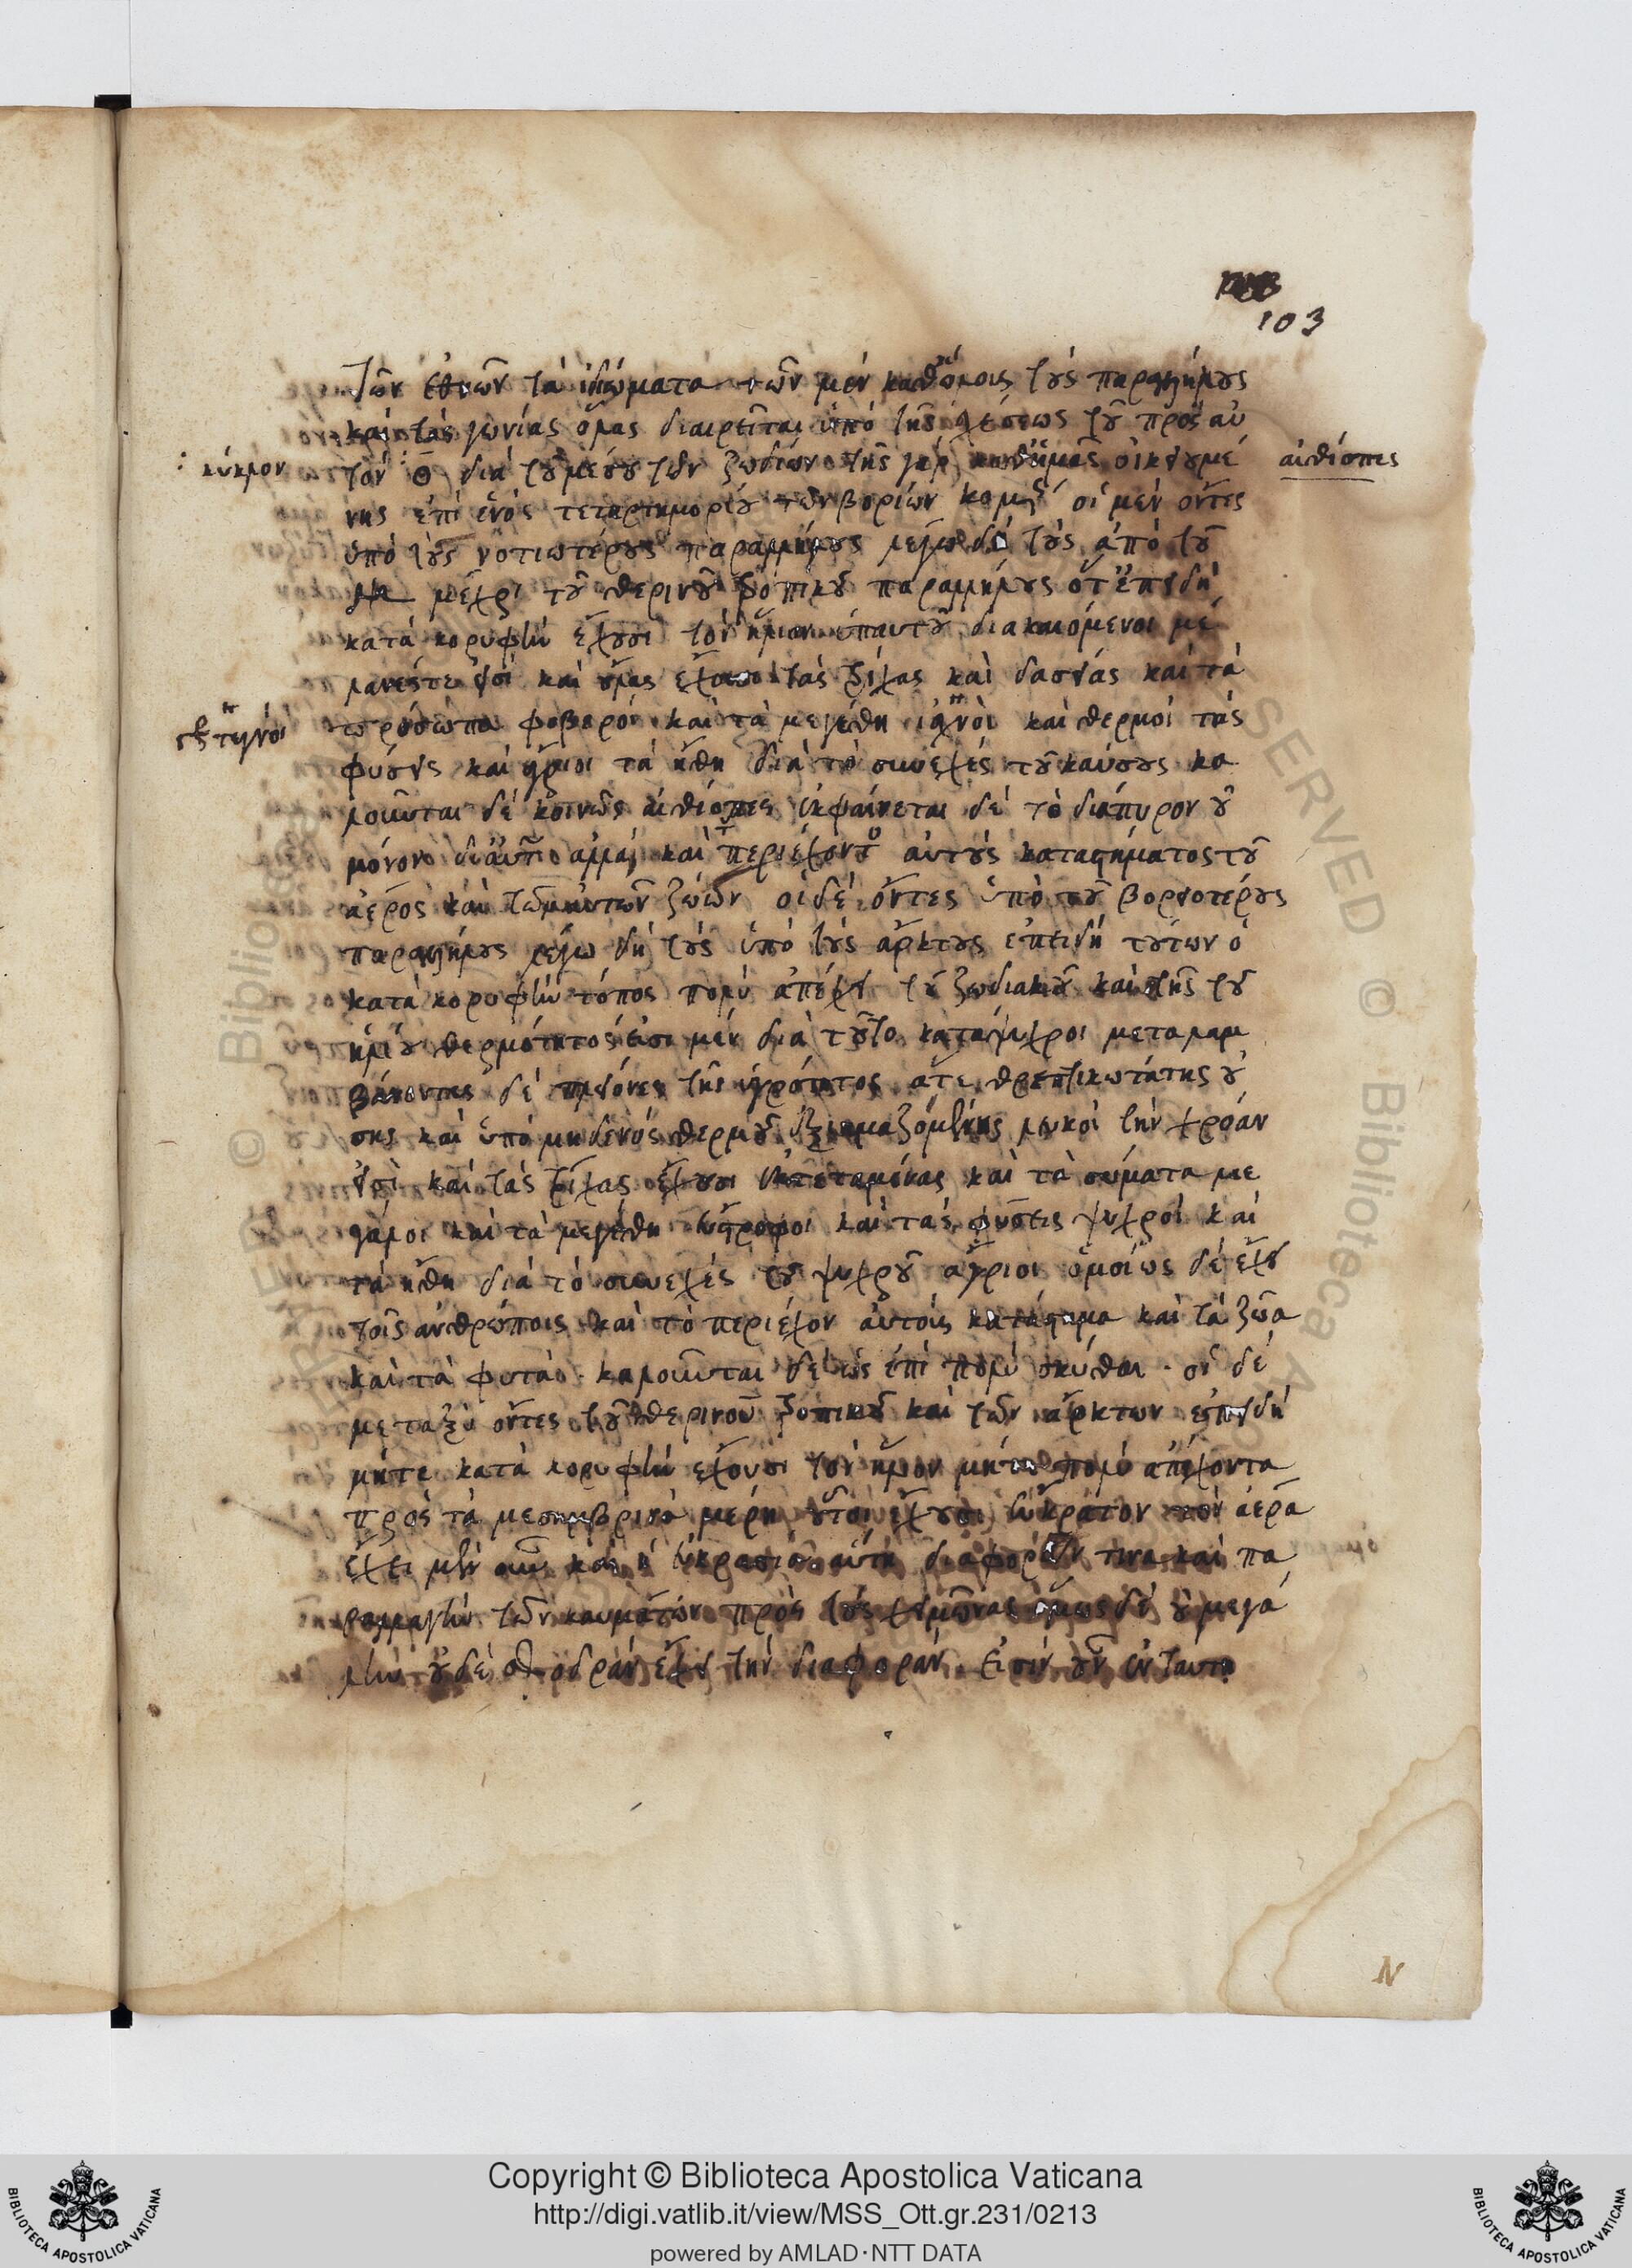 103
Τῶν ἐθνῶν τὰ ἰδιώματα τῶν μὲν καθόλοις τοὺς παραλλήλους
καὶ τὰς γωνίας ὅλας διαιρεῖται ὑπὸ τῆς σχέσεως τοῦ πρὸς αὐ
κύκλον
τὸν διὰ τοῦ μέσου τῶν ζωδίων τῆς γὰρ καθ' ἡμᾶς οἰκουμέ
αἰθίοπες
νης ἐπὶ ἑνὸς τεταρτημορίου τῶν βορίων οἱ μὲν ὄντες
ὑπὸ τοὺς νοτιωτέρους παραλλήλους λέγω δὲ τοὺς ἀπὸ τοῦ
μέχρι τοῦ θερινοῦ τροπικοῦ παραλλήλους ὅτ' ἐπειδὴ
κατὰ κορυφὴν ἔχουσι τὸν ἥλιον ὑπ' αυτοῦ διακαιόμενοι μέ
λανές τε εἰσὶ καὶ οὔλας ἔχουσι τὰς τρίχας καὶ δασείας καὶ τὰ
πρόσωπα φοβεροὶ καὶ τὰ μεγέθη ἰσχνοὶ καὶ θερμοὶ τὰς
φύσεις καὶ ἄγριοι τὰ ἤθη διὰ τὸ συνεχὲς τοῦ καύσους κα
λοῦνται δὲ κοινῶς αἰθίοπες ἐκφαίνεται δὲ τὸ διάπυρον οὐ
μόνον ἀλλὰ καὶ περιέχοντος αὐτοὺς καταστήματος τοῦ
ἀέρος καὶ τῶν ζώων οἱ δὲ ὄντες ὑπὸ τοῦ βορειοτέρους
παραλλήλους λέγω δὴ τοὺς ὑπὸ τοὺς ἄρκτους ἐπειδὴ τούτων ὁ
κατὰ κορυφὴν τόπος πολὺ ἀπέχει τοῦ ζωδιακοῦ καὶ τῆς τοῦ
ἡλίου θερμότητός εἰσι μὲν διὰ τοῦτο κατάψυχροι μεταλαμ
βάνοντες δὲ πλείονος τῆς ὑγρότητος ἅτε θρεπτικωτάτης οὔ
σης καὶ ὑπὸ μηδενὸς θερμοῦ ἐξικμαζομένης λευκοὶ τὴν χρόαν
εἰσὶ καὶ τὰς τρίχας ἔχουσι τεταμένας καὶ τὰ σώματα με
γάλοι καὶ τὰ μεγέθη εὔτροφοι καὶ τὰς φύσεις ψυχροὶ καὶ
τὰ ἤθη διὰ τὸ συνεχὲς τοῦ ψυχροῦ ἄγριοι ὁμοίως δὲ ἔχει
τοῖς ἀνθρώποις καὶ τὸ περιέχον αὐτοὺς κατάστημα καὶ τὰ ζῶα
καὶ τὰ φυτὰ. καλοῦνται δὲ ὡς ἐπὶ πολὺ σκύθαι. οἱ δὲ
μεταξὺ ὄντες τοῦ θερινοῦ τροπικοῦ καὶ τῶν ἄρκτων ἐπειδὴ
μήτε κατὰ κορυφὴν ἔχουσι τὸν ἥλιον μήτε πολὺ ἀπέχοντα
πρὸς τὰ μεσημβρινὰ μέρη οὗτοι ἔχουσι εὔκρατον τὸν ἀέρα
ἔχει μὲν οὖν καὶ ἡ εὐκρασία αὕτη διαφοράν τινα καὶ πα
ραλλαγὴν τῶν καυμάτων πρὸς τοὺς χειμῶνας ὅμως δὲ οὐ μεγά
λην οὐδὲ σφοδρὰν ἔχει τὴν διαφοράν. εἰσὶν οὖν ἐνταυτη
N
Copyright © Biblioteca Apostolica Vaticana
http://digi.vatlib.it/view/MSS_Ott.gr.231/0213
powered by AMLAD·NTT DATA
BIBLIOTECA APOSTOLICA VATICANA
BIBLIOTECA APOSTOLICA VATICANA